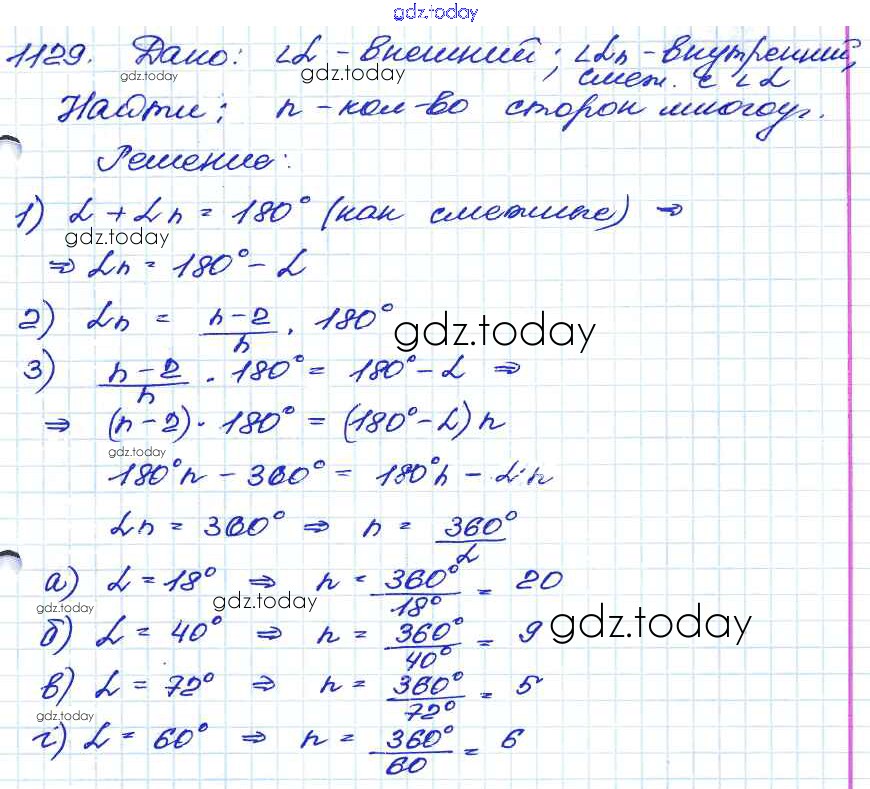 gdz.today
1129. Дано: ∠α - внешний; ∠αn - внутренний,
gdz.today gdz.today смеж. с ∠α
Найти: n - кол-во сторон многоуг.
Решение:
1) α + αn = 180° (как смежные) ⇒
gdz.today
⇒ αn = 180° - α
2) αn = (n-2)/n · 180° gdz.today
3) (n-2)/n · 180° = 180° - α ⇒
⇒ (n-2) · 180° = (180° - α) n
gdz.today
180°n - 360° = 180°n - α·n
αn = 360° ⇒ n = 360°/α
а) α = 18° ⇒ n = 360°/18° = 20
gdz.today gdz.today
б) α = 40° ⇒ n = 360°/40° = 9 gdz.today
в) α = 72° ⇒ n = 360°/72° = 5
gdz.today
г) α = 60° ⇒ n = 360°/60 = 6